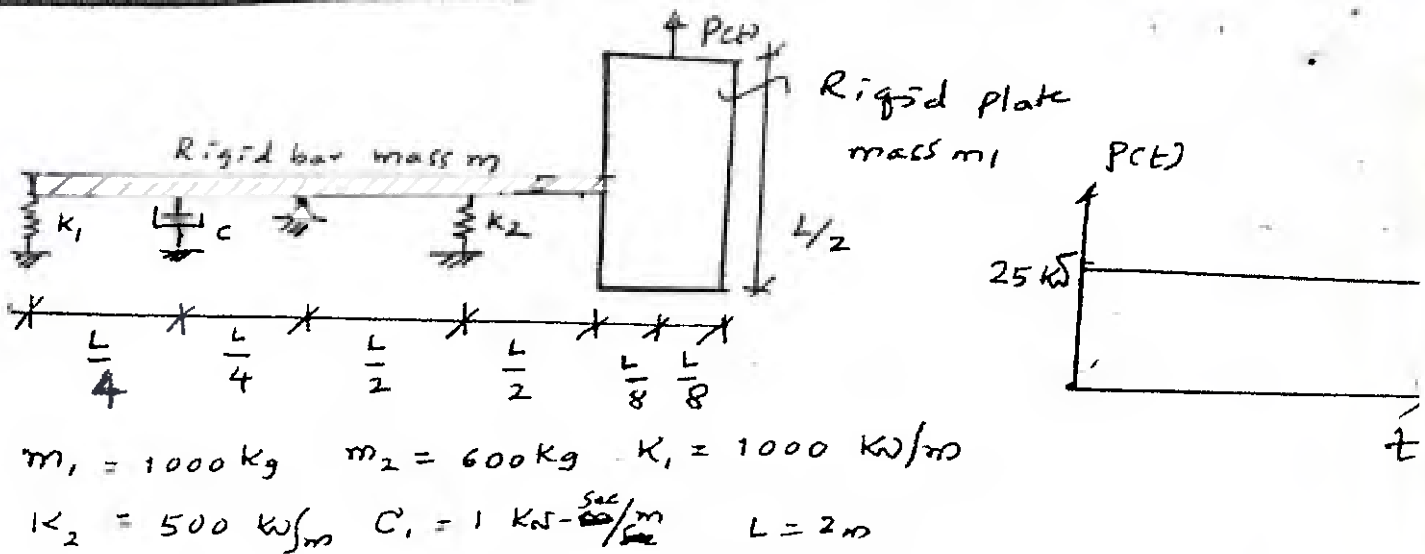 P(t)
Rigid plate
mass m1
Rigid bar mass m
P(t)
K1
C
K2
L/2
25 kN
L/4 L/4 L/2 L/2 L/8 L/8
t
m1 = 1000 kg m2 = 600 kg K1 = 1000 KN/m
K2 = 500 KN/m C1 = 1 KN-sec/m L = 2m